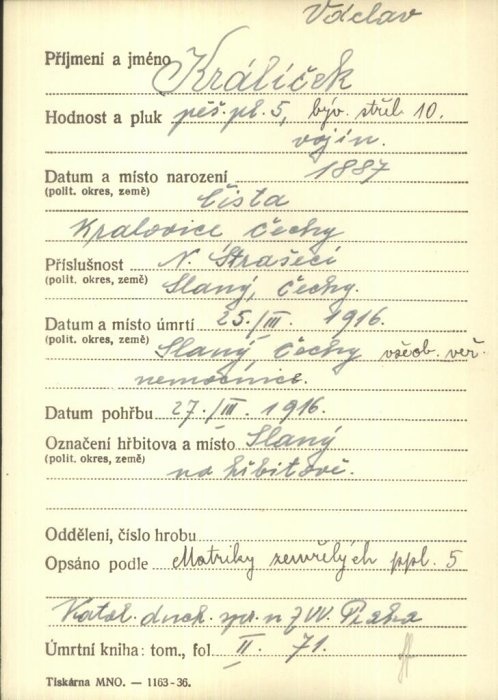 Václav
Příjmení a jméno Králíček
Hodnost a pluk pěš. pl. 5, býv. střel. 10.
vojín.
Datum a místo narození 1887
(polit. okres, země) Čista
Kralovice Čechy
Příslušnost N. Strašecí
(polit. okres, země) Slaný, Čechy.
Datum a místo úmrtí 25./III. 1916.
(polit. okres, země) Slaný, Čechy všeob. veř.
nemocnice.
Datum pohřbu 27./III. 1916.
Označení hřbitova a místo Slaný
(polit. okres, země) na hřbitově.
Oddělení, číslo hrobu
Opsáno podle Matriky zemřelých ppl. 5
Katol. duch. spr. n ZVV. Praha
Úmrtní kniha: tom., fol. II. 71.
Tiskárna MNO. — 1163-36.